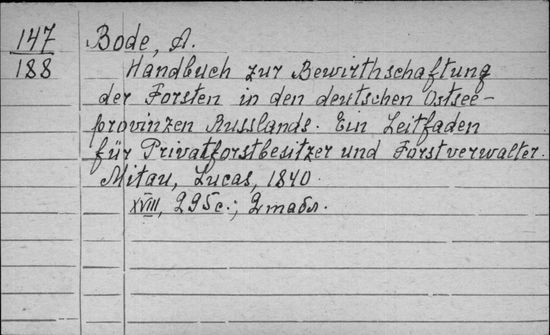 147 Bode, A.
188 Handbuch zur Bewirthschaftung
der Forsten in den deutschen Ostsee-
provinzen Russlands. Ein Leitfaden
für Privatforstbesitzer und Forstverwalter.
Mitau, Lucas, 1840.
XVIII, 295 с.; 2 табл.